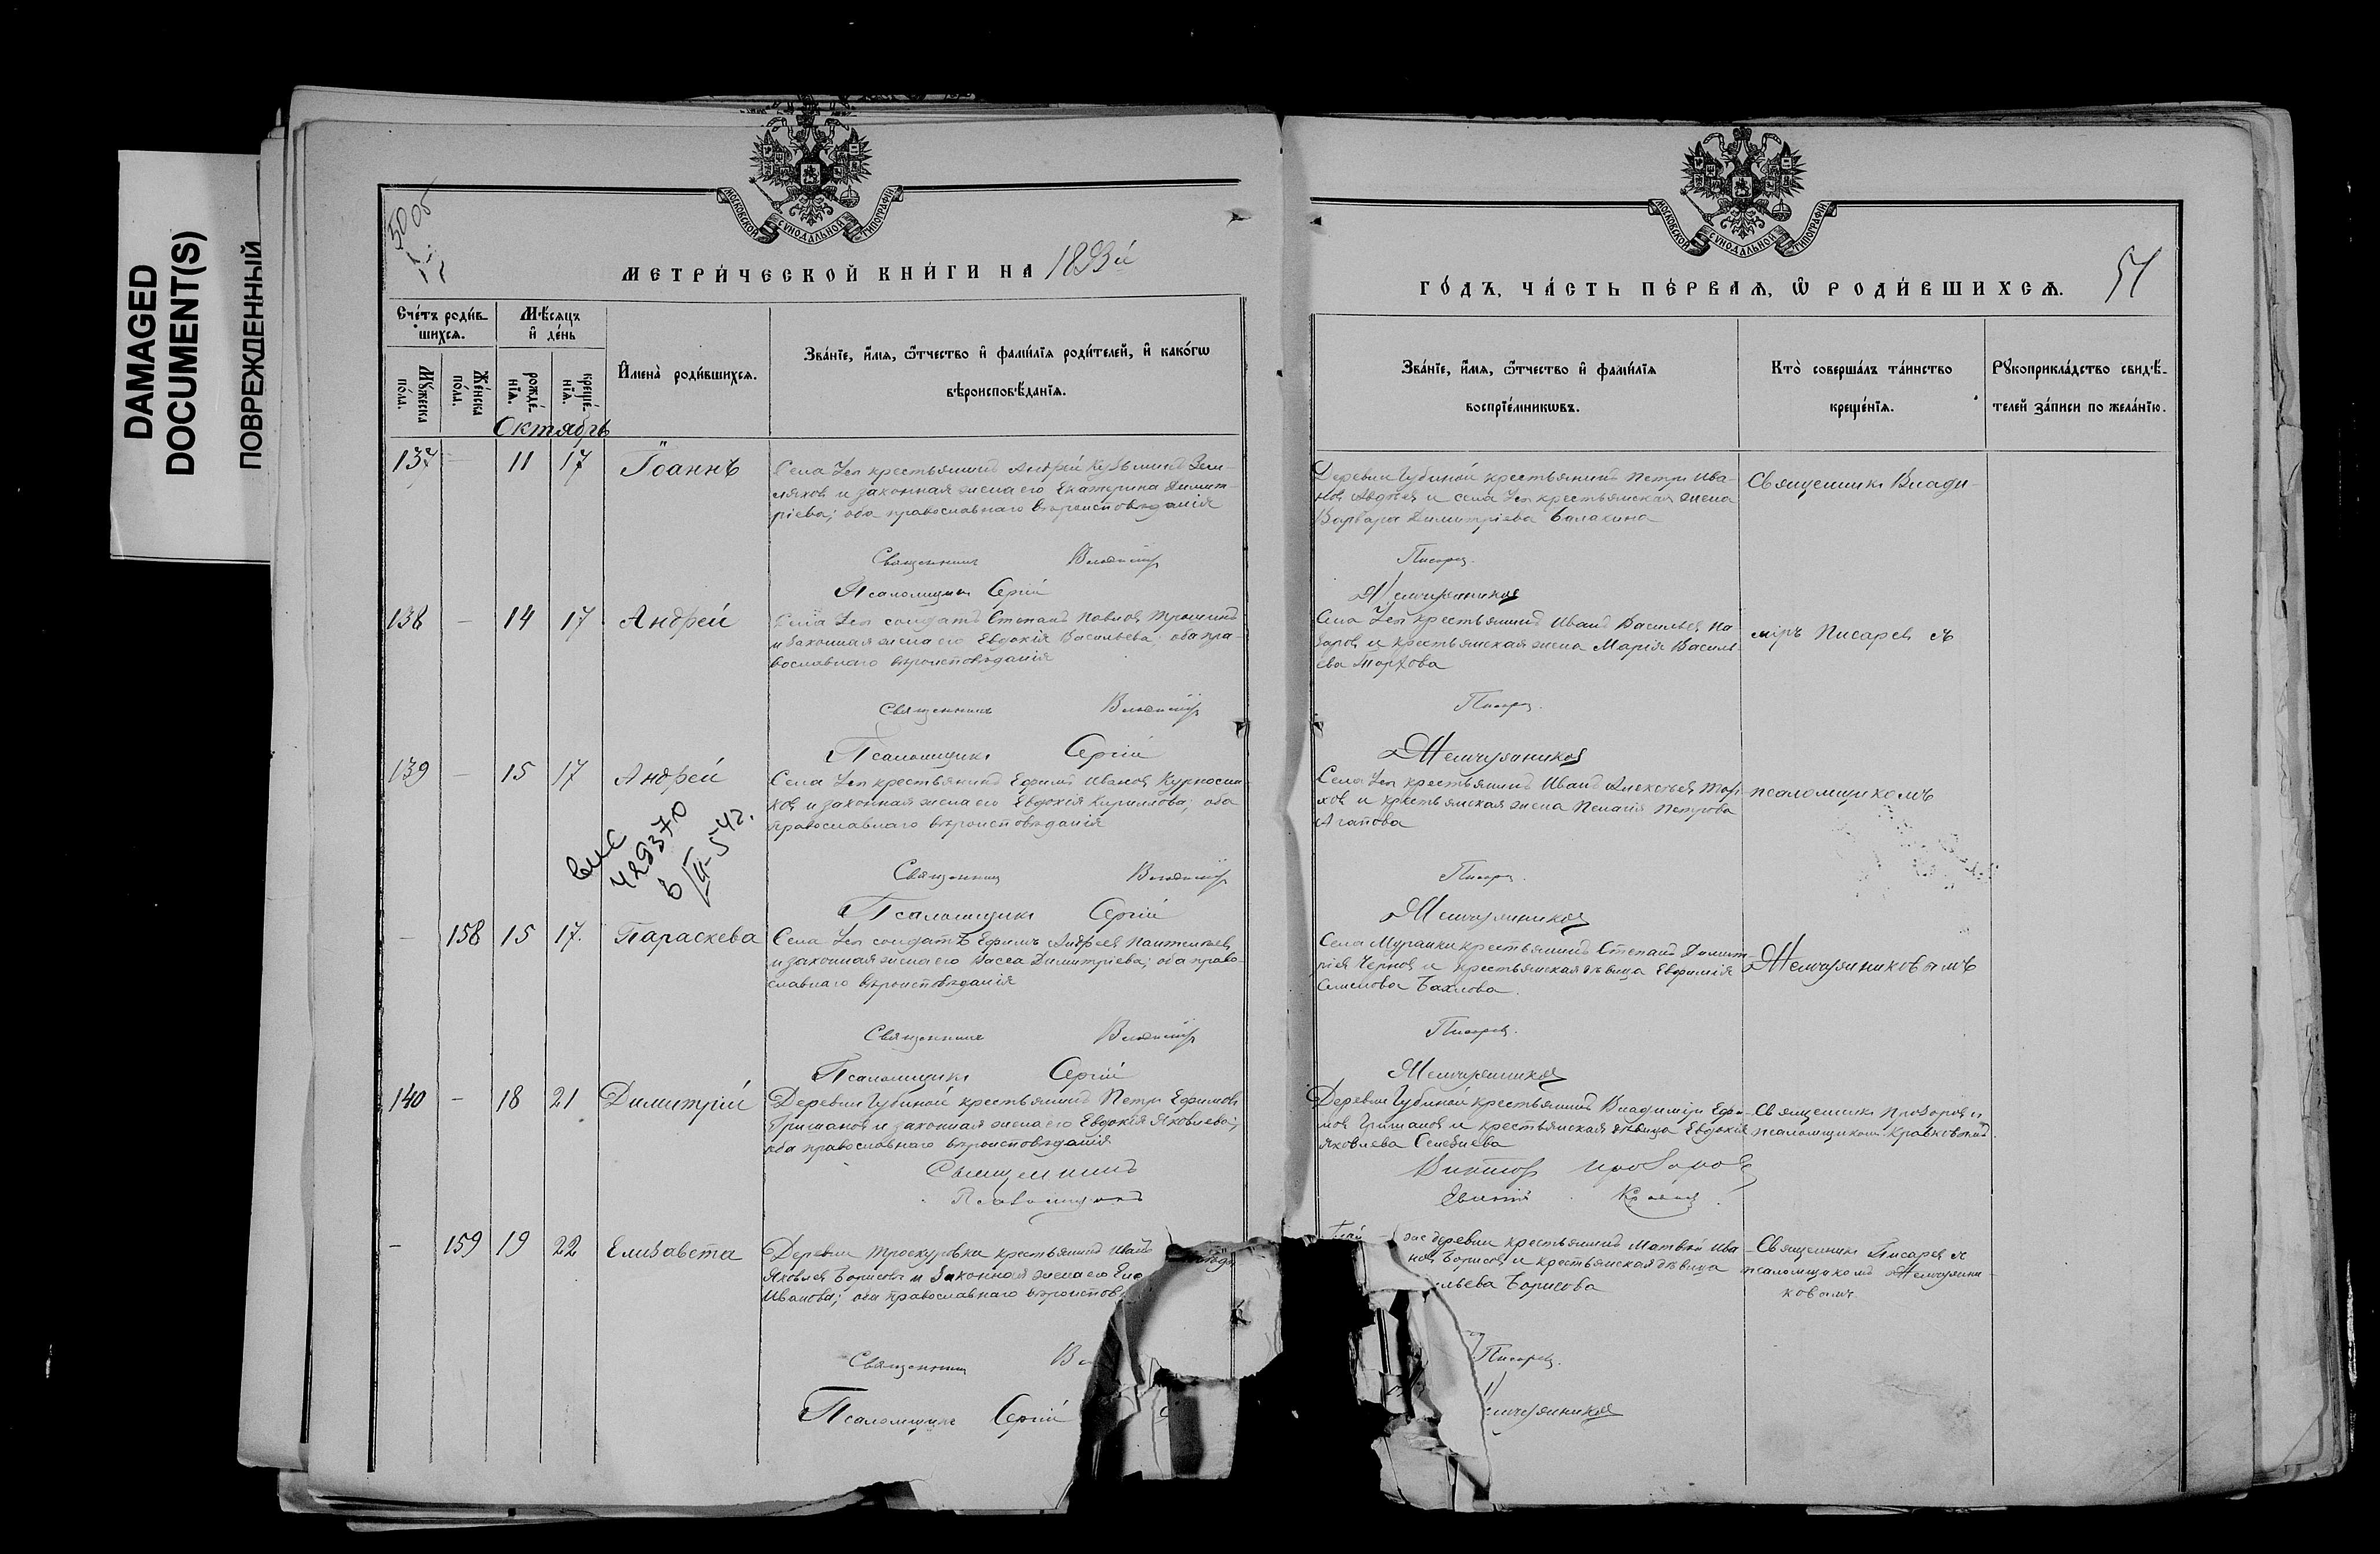 DAMAGED
DOCUMENT(S)
ПОВРЕЖДЕННЫЙ
МОСКОВСКОЙ СУНОДАЛЬНОЙ ТИПОГРАФІИ
МЕТРИ́ЧЕСКОЙ КНИ́ГИ НА 1893й
Сче́тъ роди́в-
шихся.
Мѣ́сяцъ
и҆ де́нь
И҆мена̀ роди́вшихся.
Зва́нїе, и҆́мя, ѻ҆́тчество и҆ фами́лїя роди́телей, и҆ како́гѡ
вѣроисповѣ́данїя.
Му́жеска
по́ла.
Же́нска
по́ла.
рожде́-
нїя.
креще́-
нїя.
Октябрь
137 — 11 17 Іоаннъ
Села крестьянинъ Андрей Кузьминъ Зем-
ляховъ и законная жена его Екатерина Димит-
ріева; оба православнаго вѣроисповѣданія
Священникъ Владиміръ
Псаломщикъ Сергій
138 — 14 17 Андрей
Села солдатъ Степанъ Павловъ
и законная жена его Евдокія Васильева; оба пра-
вославнаго вѣроисповѣданія
Священникъ Владиміръ
Псаломщикъ Сергій
139 — 15 17 Андрей
Села крестьянинъ Ефимъ Ивановъ Курносен-
ковъ и законная жена его Евдокія Кириллова; оба
православнаго вѣроисповѣданія
429370
Священникъ Владиміръ
Псаломщикъ Сергій
— 158 15 17. Параскева
Села солдатъ Ефимъ Андреевъ Пантелѣевъ
и законная жена его Васса Димитріева; оба право-
славнаго вѣроисповѣданія
Священникъ Владиміръ
Псаломщикъ Сергій
140 — 18 21 Димитрій
Деревни Губиной крестьянинъ Петръ Ефимовъ
Гришановъ и законная жена его Евдокія Яковлева;
оба православнаго вѣроисповѣданія
Священникъ
Псаломщикъ
— 159 19 22 Елисавета
Деревни Троекуровки крестьянинъ Иванъ
Яковлевъ Борисовъ и законная жена его
Иванова; оба православнаго вѣроиспов
Священникъ
Псаломщикъ Сергій
МОСКОВСКОЙ СУНОДАЛЬНОЙ ТИПОГРАФІИ
ГО́ДЪ, ЧА́СТЬ ПЕ́РВАЯ, Ѡ҆ РОДИ́ВШИХСЯ.
51
Зва́нїе, и҆́мя, ѻ҆́тчество и҆ фами́лїя
воспрїе́мникѡвъ.
Кто̀ соверша́лъ та́инство
креще́нїя.
Рꙋкоприкла́дство свидѣ́-
телей за́писи по жела́нїю.
Деревни Губиной крестьянинъ Петръ Ива-
новъ Авдѣевъ и села крестьянская жена
Варвара Димитріева Балакина
Священникъ Влади-
Писарев
Жемчужников
Села крестьянинъ Иванъ Васильевъ На-
заровъ и крестьянская жена Марія Василь-
ева Торхова
міръ Писаревъ съ
Писарев
Жемчужников
Села крестьянинъ Иванъ Алексѣевъ Тор-
ховъ и крестьянская жена Пелагія Петрова
Агапова
псаломщикомъ
Писарев
Жемчужников
Села Мураики крестьянинъ Степанъ Димит-
ріевъ Черновъ и крестьянская дѣвица Евфимія
Семенова Бахлова.
Жемчужниковымъ
Писарев
Жемчужников
Деревни Губиной крестьянинъ Владиміръ Ефи-
мовъ Гришановъ и крестьянская дѣвица Евдокія
Яковлева Селезнева
Священникъ Прозоровъ и
псаломщикомъ Кравковымъ
Викторъ Прозоровъ
Евгеній
деревни крестьянинъ Матвѣй Ива
новъ Борисовъ и крестьянская дѣвица
льева Борисова
Священникъ Писаревъ и
псаломщикомъ Жемчужни-
ковымъ
Писарев
емчужников